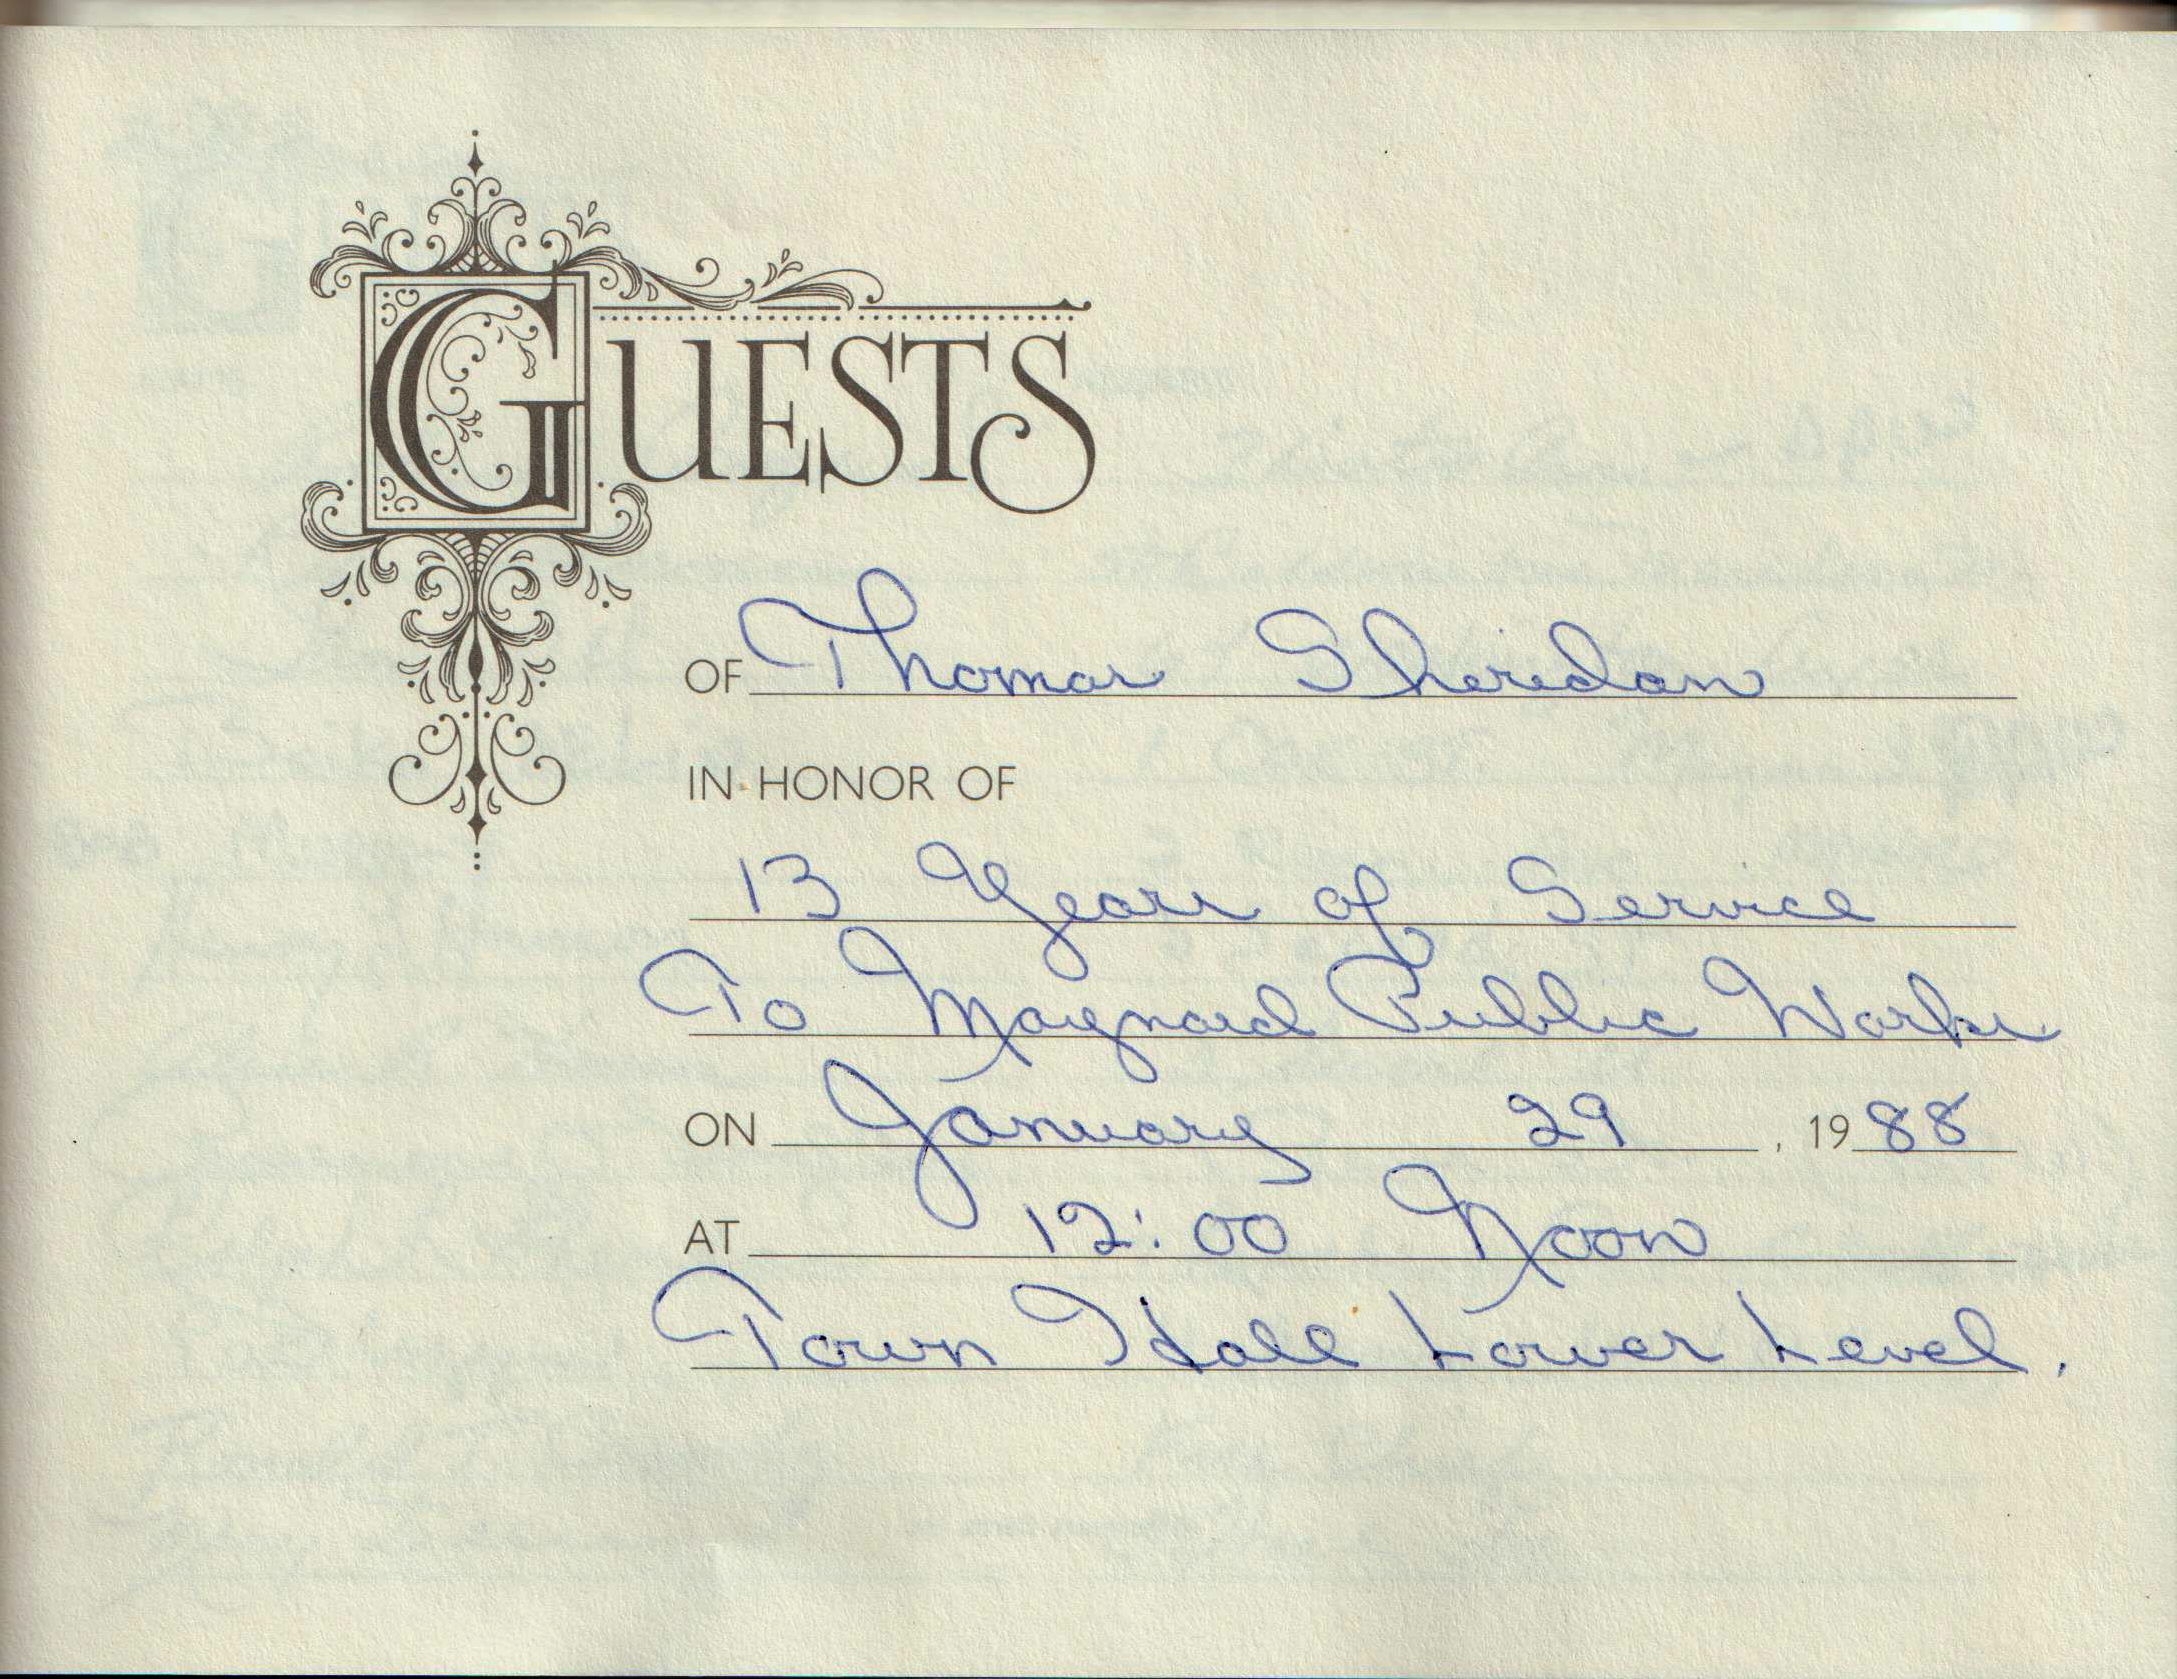 GUESTS
OF Thomas Sheridan
IN HONOR OF
13 Years of Service
To Maynard Public Works
ON January 29, 1988
AT 12:00 Noon
Town Hall Lower Level.